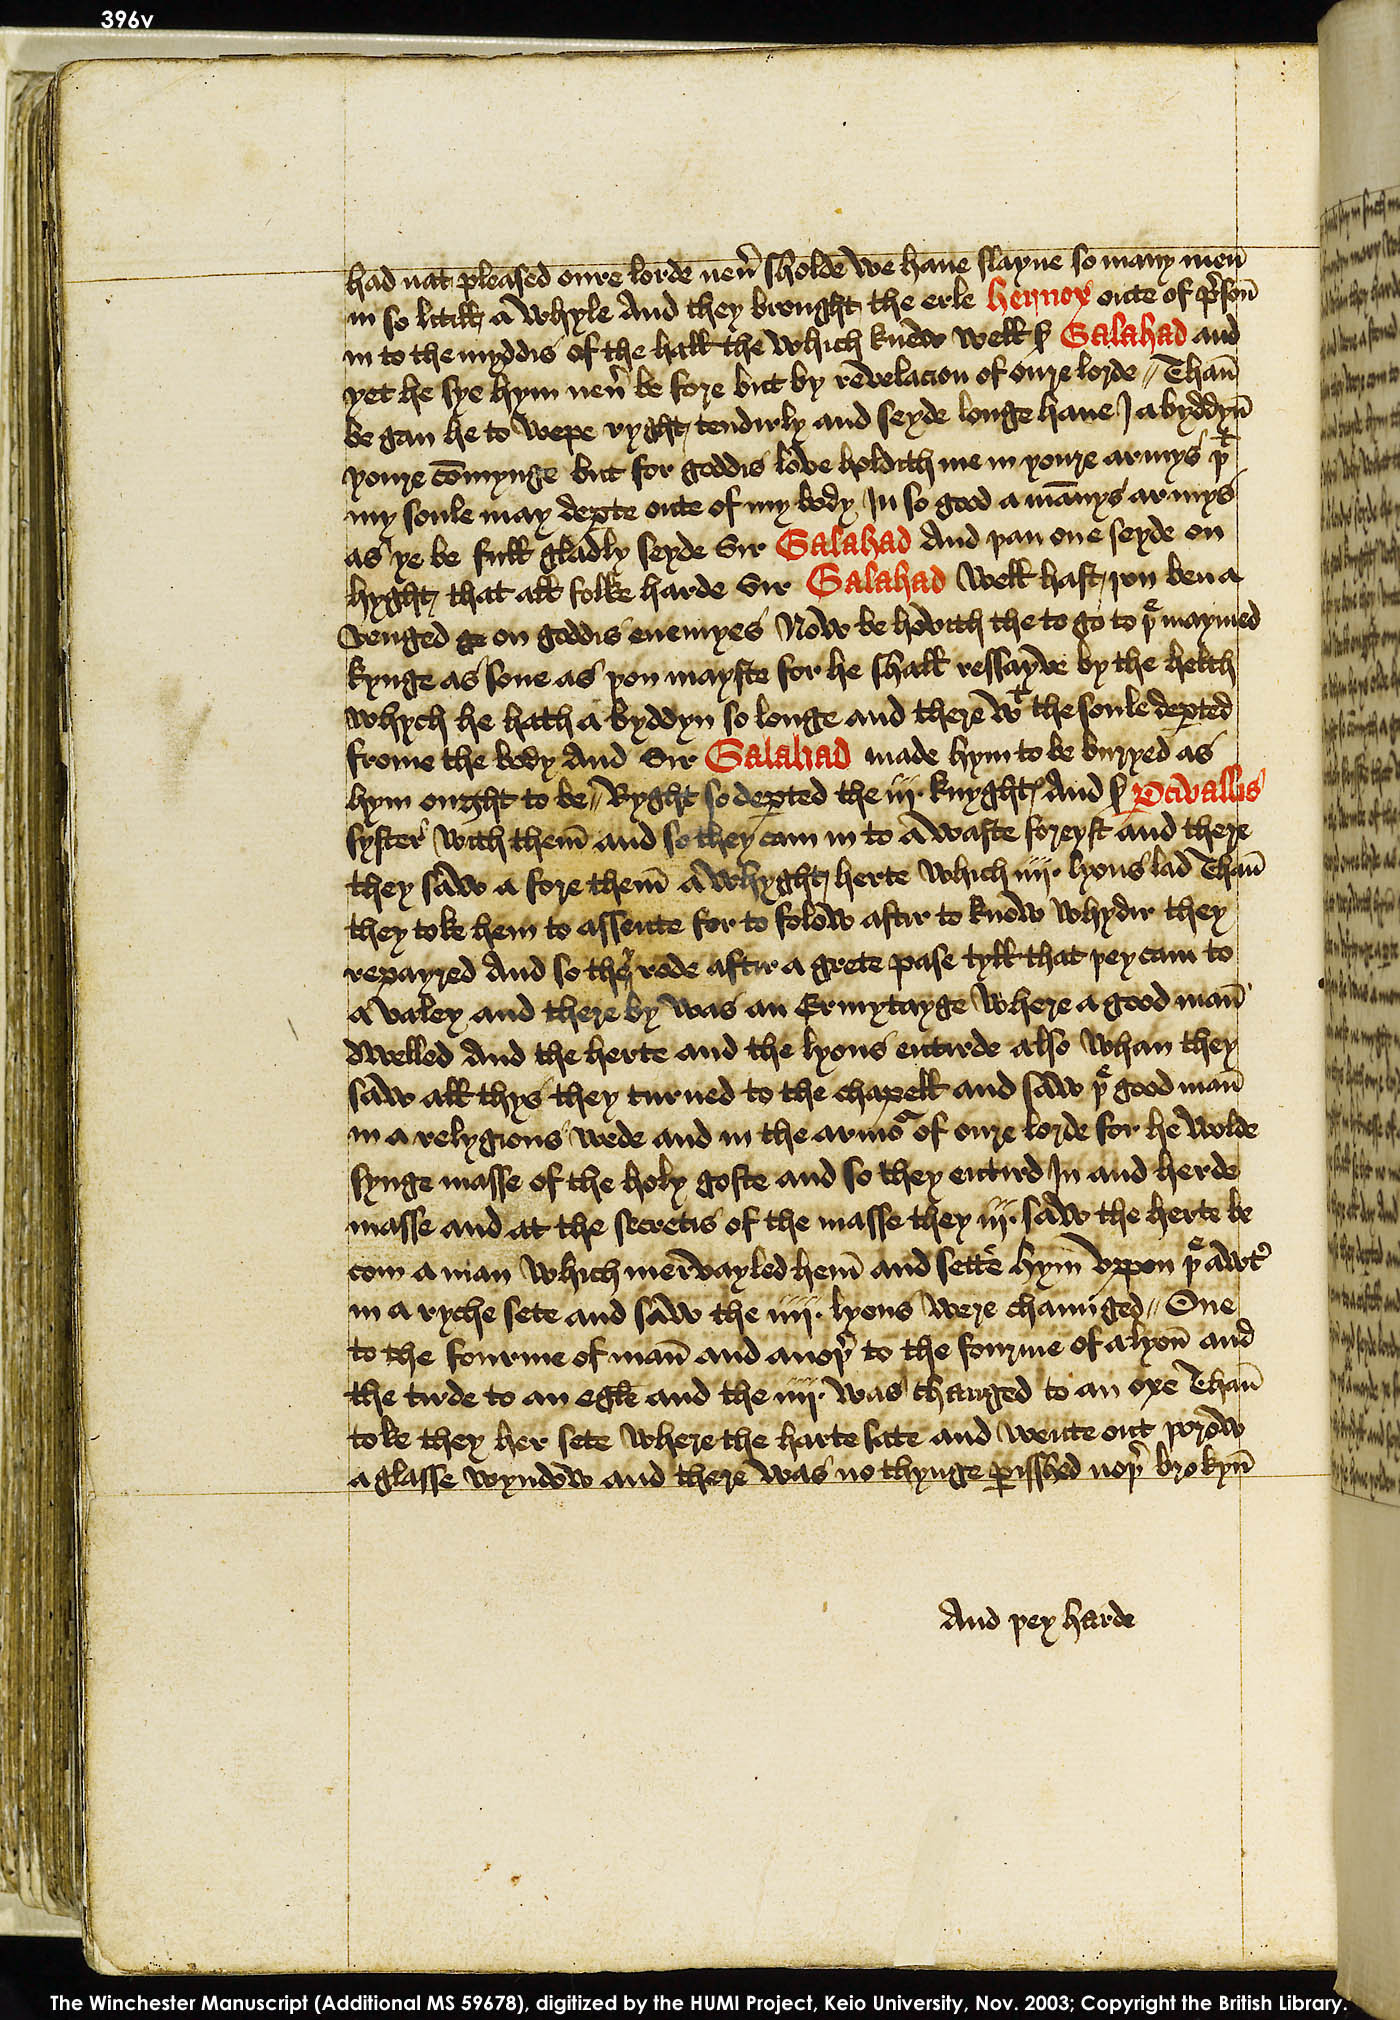 396v
had nat pleased oure lorde neu̓ sholde we haue slayne so many men̄
in so litill a whyle And they brought the erle Hernox oute of p̓son̄
in to the myddis of the hall the which knew well ẜ Galahad and
yet he sye hym neu̓ be fore but by revelacion of oure lorde // Than̄
be gan he to wepe ryght tendirly and seyde longe haue I abyddyn̄
youre co̅mynge but for goddis love holdith me in youre armys þᵗ
my soule may deꝑte oute of my body In so good a ma̅nys armys
as ye be full gladly seyde Sir Galahad And þan one seyde on
hyght that all folke harde Sir Galahad well hast þou ben a
venged ge on goddis enemyes Now be hovith the to go to þͤ maymed
kynge as sone as þou mayste for he shall ressayve by the helth
whych he hath a byddyn so longe and there wᵗ the soule deꝑted
frome the body And Sir Galahad made hym to be buryed as
hym ought to be // Ryght so deꝑted the iij. knyghtꝭ And ẜ Ꝑcivallis
syster with them̄ and so they cam in to a waste foreyst and there
they saw a fore them̄ a whyght herte which iiij. lyons lad Than̄
they toke hem to assente for to folow aftir to know whydir they
repayred And so theʸ rode aftir a grete pase tyll that þey cam to
a valey and there by was an Ermytayge where a good man̄
dwelled And the herte and the lyons entirde also whan they
saw all thys they turned to the chapell and saw þͤ good man̄
in a relygious wede and in the armoᵃ of oure lorde for he wolde
synge masse of the holy goste and so they entird In and herde
masse and at the secretis of the masse they iij. saw the herte be
com a man which mervayled hem̄ and sette hym vppon þͤ awt̓
in a ryche sete and saw the iiij. lyons were chaunged // One
to the fourme of man̄ and anoþ̓ to the fourme of a lyon̄ and
the tirde to an egle and the iiij. was changed to an oxe Than̄
toke they her sete where the harte sate and wente out þorow
a glasse wyndow and there was no thynge ꝑisshed noþ̓ brokyn̄
And þey harde
The Winchester Manuscript (Additional MS 59678), digitized by the HUMI Project, Keio University, Nov. 2003; Copyright the British Library.